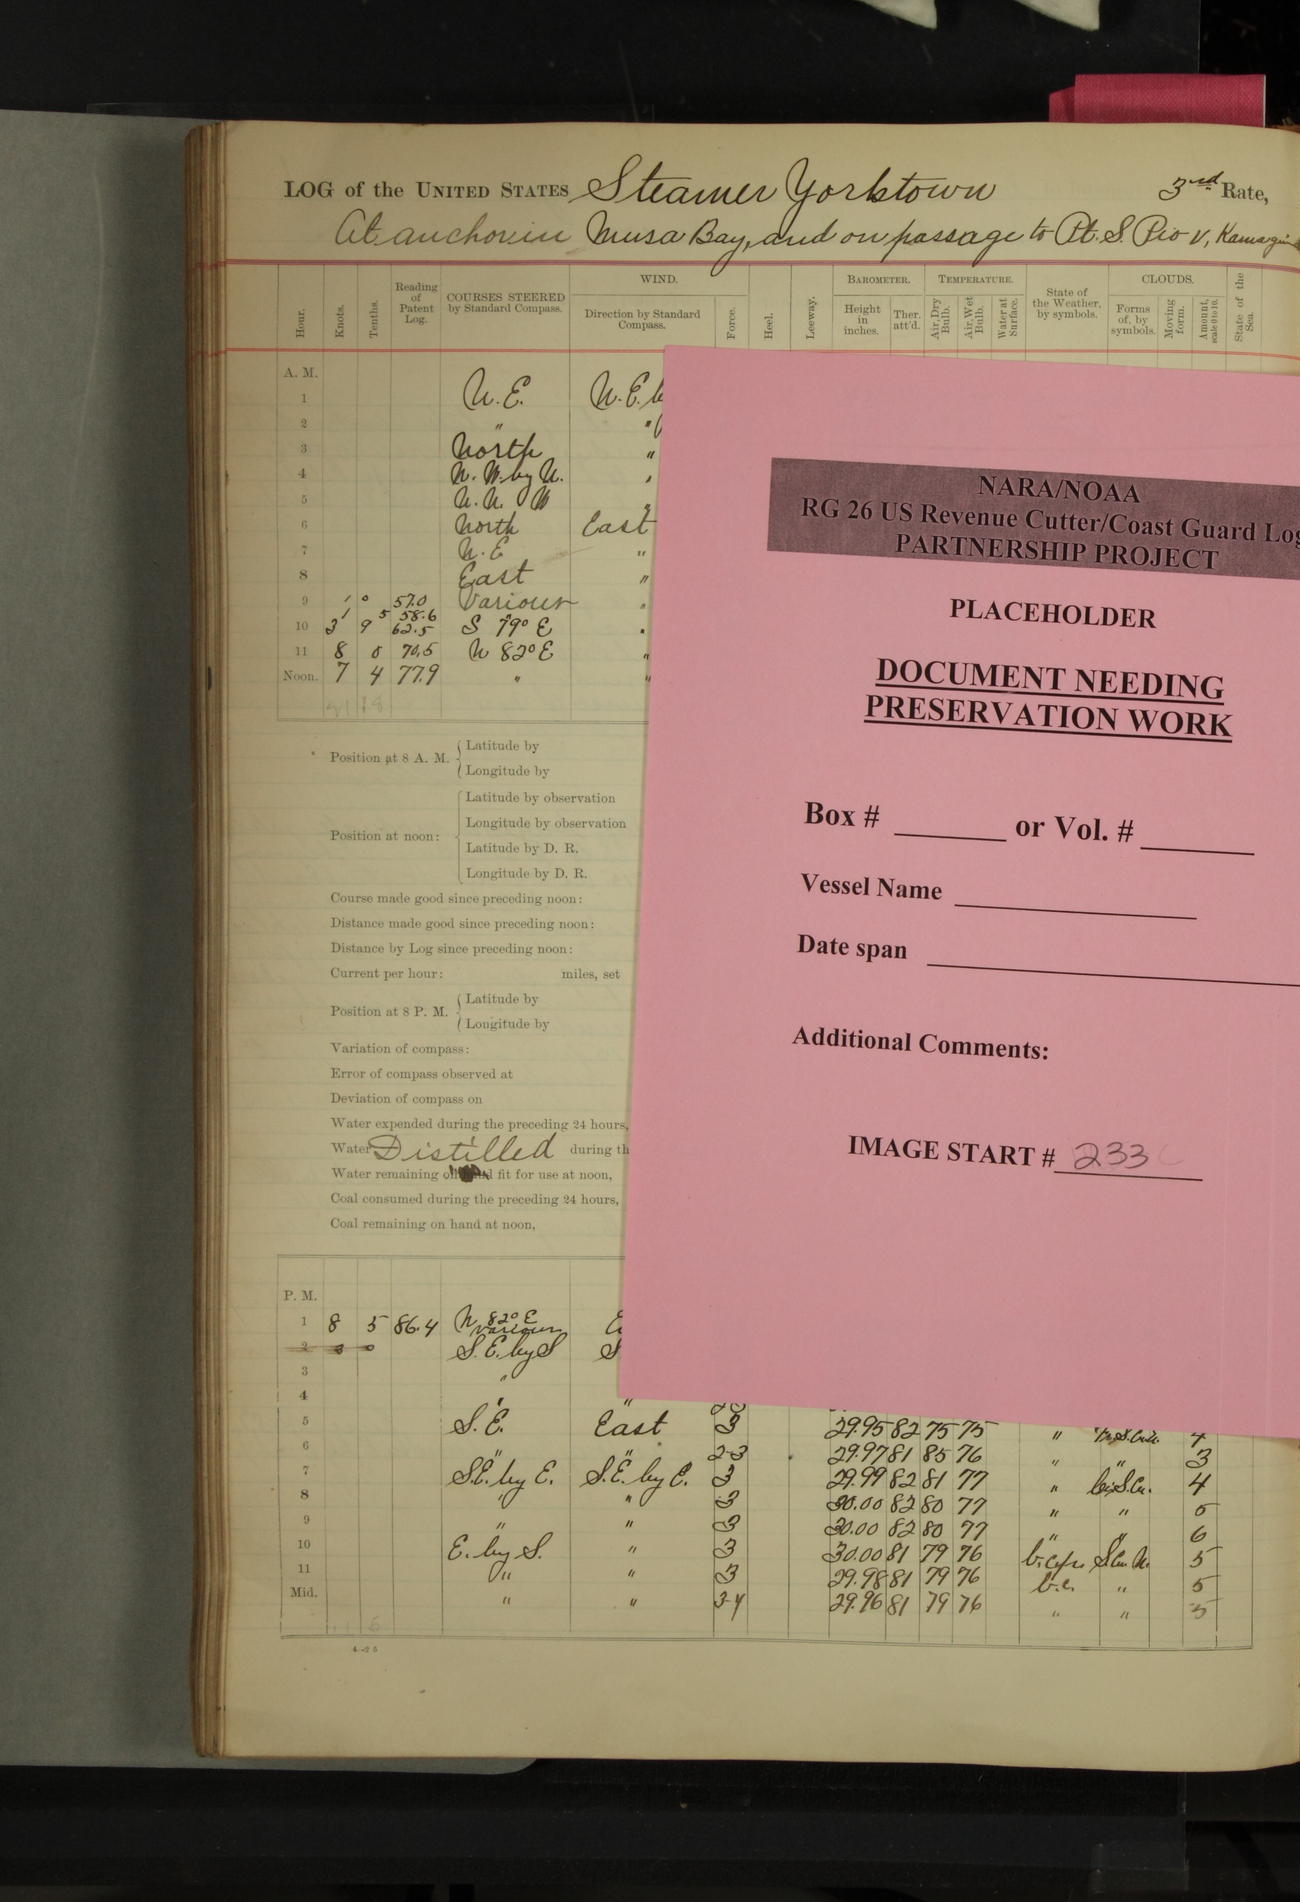 LOG of the UNITED STATES Steamer Yorktown 3rd Rate,
At anchor in Musa Bay, and on passage to Pt. S. Pio V,
Hour. Knots. Tenths. Reading of Patent Log. COURSES STEERED by Standard Compass. WIND. Direction by Standard Compass. Force. Heel. Leeway. BAROMETER. Height in inches. Ther. att'd. TEMPERATURE. Air, Dry Bulb. Air, Wet Bulb. Water at Surface. State of the Weather, by symbols. CLOUDS. Forms of, by symbols. Moving form. Amount, scale 0 to 10. State of the Sea.
A. M.
1 N.E. N.E. b
2 " "
3 North "
4 N. W. by N. "
5 N. N. W "
6 North East
7 N.E "
8 East "
9 1 0 57.0 Various "
1 5 58.6
10 3 9 62.5 S 79° E "
11 8 0 70.5 N 82° E "
Noon. 7 4 77.9 " "
Position at 8 A. M. Latitude by
Longitude by
Position at noon: Latitude by observation
Longitude by observation
Latitude by D. R.
Longitude by D. R.
Course made good since preceding noon:
Distance made good since preceding noon:
Distance by Log since preceding noon:
Current per hour: miles, set
Position at 8 P. M. Latitude by
Longitude by
Variation of compass:
Error of compass observed at
Deviation of compass on
Water expended during the preceding 24 hours,
Water Distilled during th
Water remaining on hand fit for use at noon,
Coal consumed during the preceding 24 hours,
Coal remaining on hand at noon,
P. M.
1 8 5 86.4 N 82° E
Various
2 S. E. by S S
3 "
4 " "
5 S.E. East 3 29.95 82 75 75 " 4
6 " " 2-3 29.97 81 85 76 " " 3
7 S.E. by E. S.E. by E. 3 29.99 82 81 77 " 4
8 " " 3 30.00 82 80 77 " " 5
9 " " 3 30.00 82 80 77 " " 6
10 E. by S. " 3 30.00 81 79 76 5
11 " " 3 29.98 81 79 76 b.c. " 5
Mid. " " 3-4 29.96 81 79 76 " " 5
4-25
NARA/NOAA
RG 26 US Revenue Cutter/Coast Guard Log
PARTNERSHIP PROJECT
PLACEHOLDER
DOCUMENT NEEDING
PRESERVATION WORK
Box # or Vol. #
Vessel Name
Date span
Additional Comments:
IMAGE START # 233